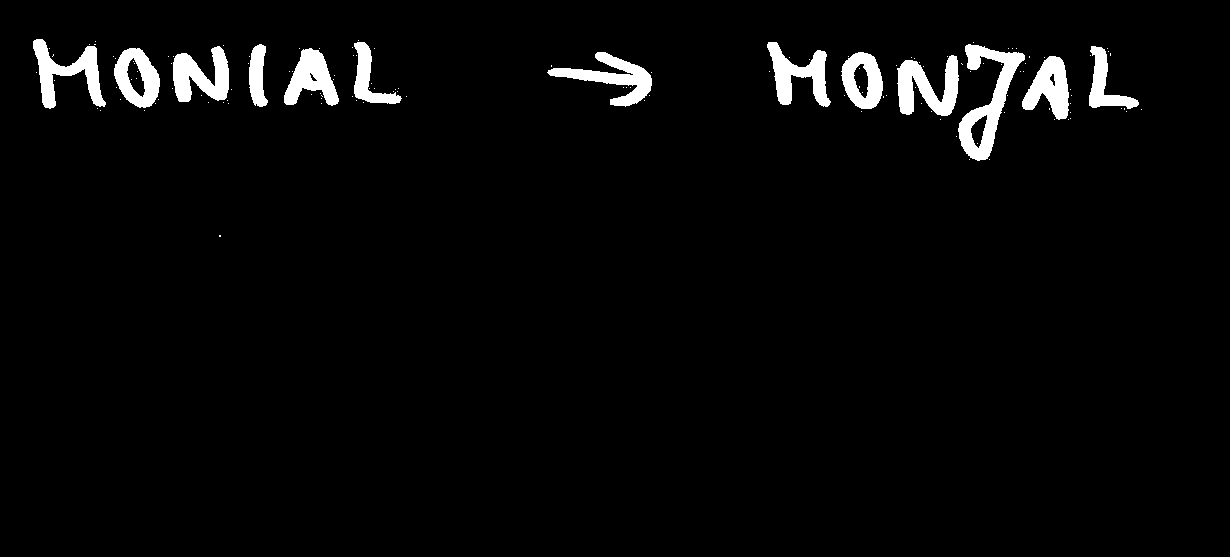 MONIAL → MONJAL